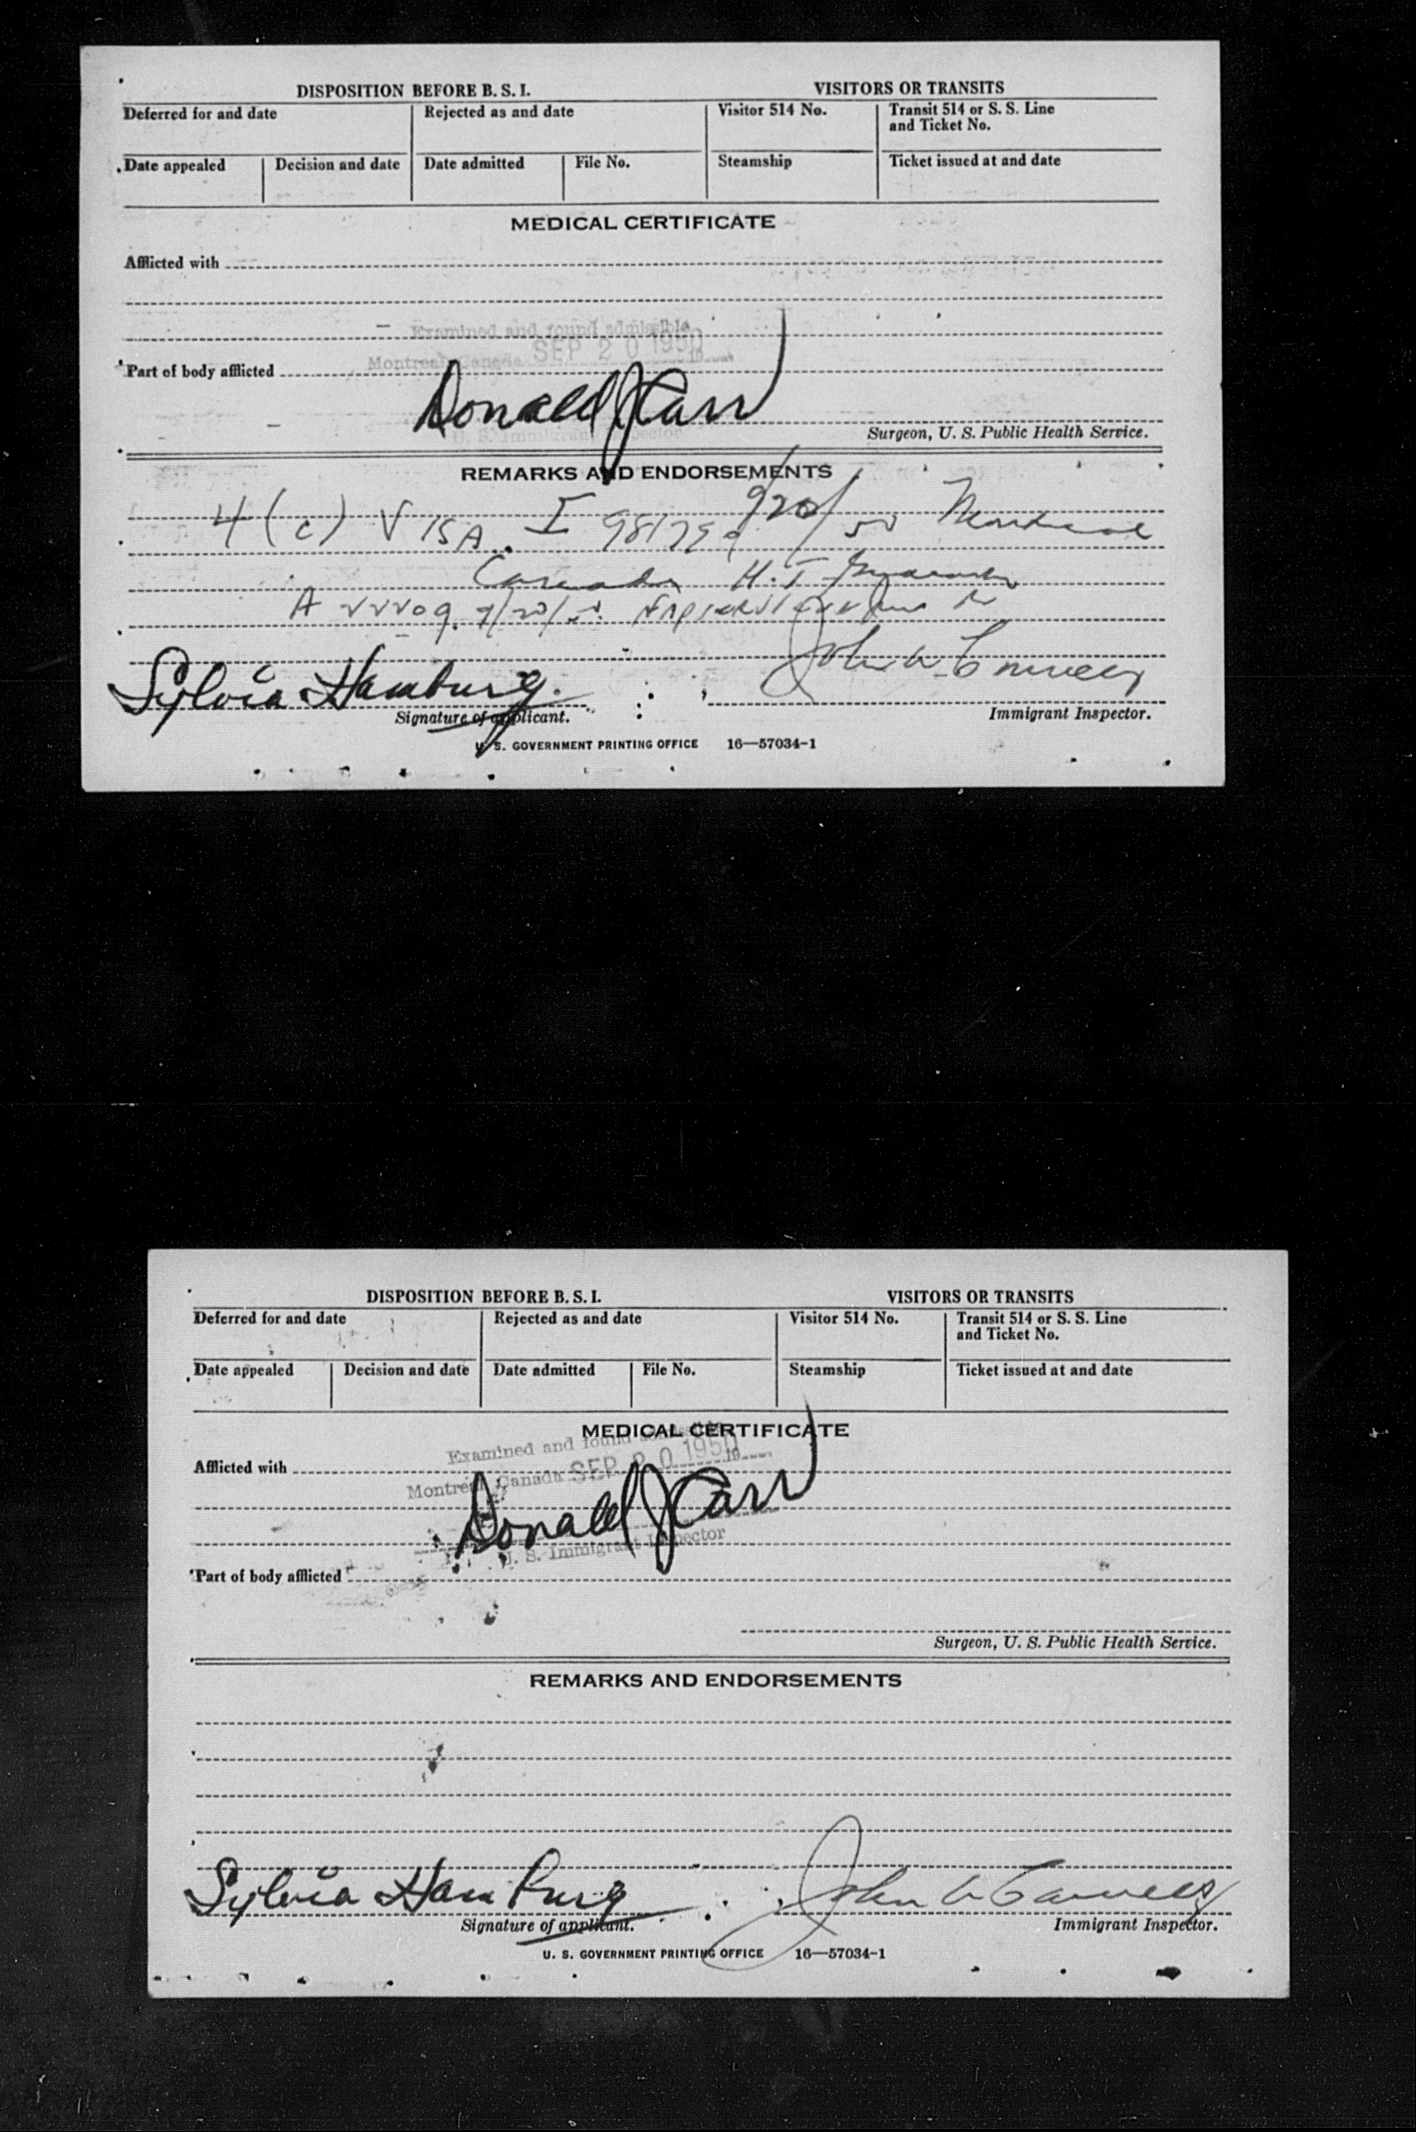 DISPOSITION BEFORE B. S. I.
VISITORS OR TRANSITS
Deferred for and date
Rejected as and date
Visitor 514 No.
Transit 514 or S. S. Line
and Ticket No.
Date appealed
Decision and date
Date admitted
File No.
Steamship
Ticket issued at and date
MEDICAL CERTIFICATE
Afflicted with
Examined and found admissible
Montreal Canada SEP 20 1950 19
Part of body afflicted
Donald J Carr
U. S. Immigrant Inspector
Surgeon, U. S. Public Health Service.
REMARKS AND ENDORSEMENTS
4(c) VISA I 9/20/50 Montreal
Canada
A
Sylvia Hamburg.
John W
Signature of applicant.
Immigrant Inspector.
U. S. GOVERNMENT PRINTING OFFICE 16—57034-1
DISPOSITION BEFORE B. S. I.
VISITORS OR TRANSITS
Deferred for and date
Rejected as and date
Visitor 514 No.
Transit 514 or S. S. Line
and Ticket No.
Date appealed
Decision and date
Date admitted
File No.
Steamship
Ticket issued at and date
MEDICAL CERTIFICATE
Examined and found admissible
Afflicted with
Montreal, Canada SEP 20 1950 19
Donald J Carr
U. S. Immigrant Inspector
Part of body afflicted
Surgeon, U. S. Public Health Service.
REMARKS AND ENDORSEMENTS
Sylvia Hamburg
John W
Signature of applicant.
Immigrant Inspector.
U. S. GOVERNMENT PRINTING OFFICE 16—57034-1